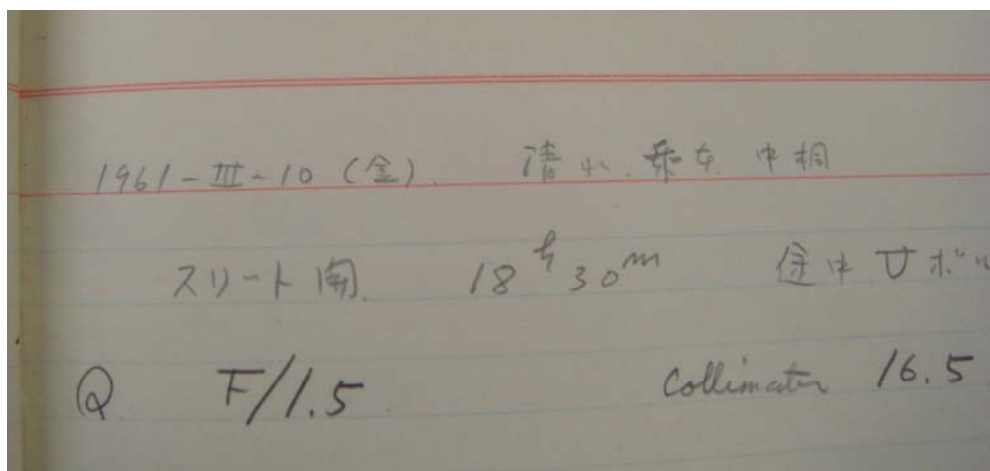 1961-III-10 (金). 清水. 乗本. 中桐
スリート開. 18h30m 途中サボル
Q F/1.5 Collimator 16.5